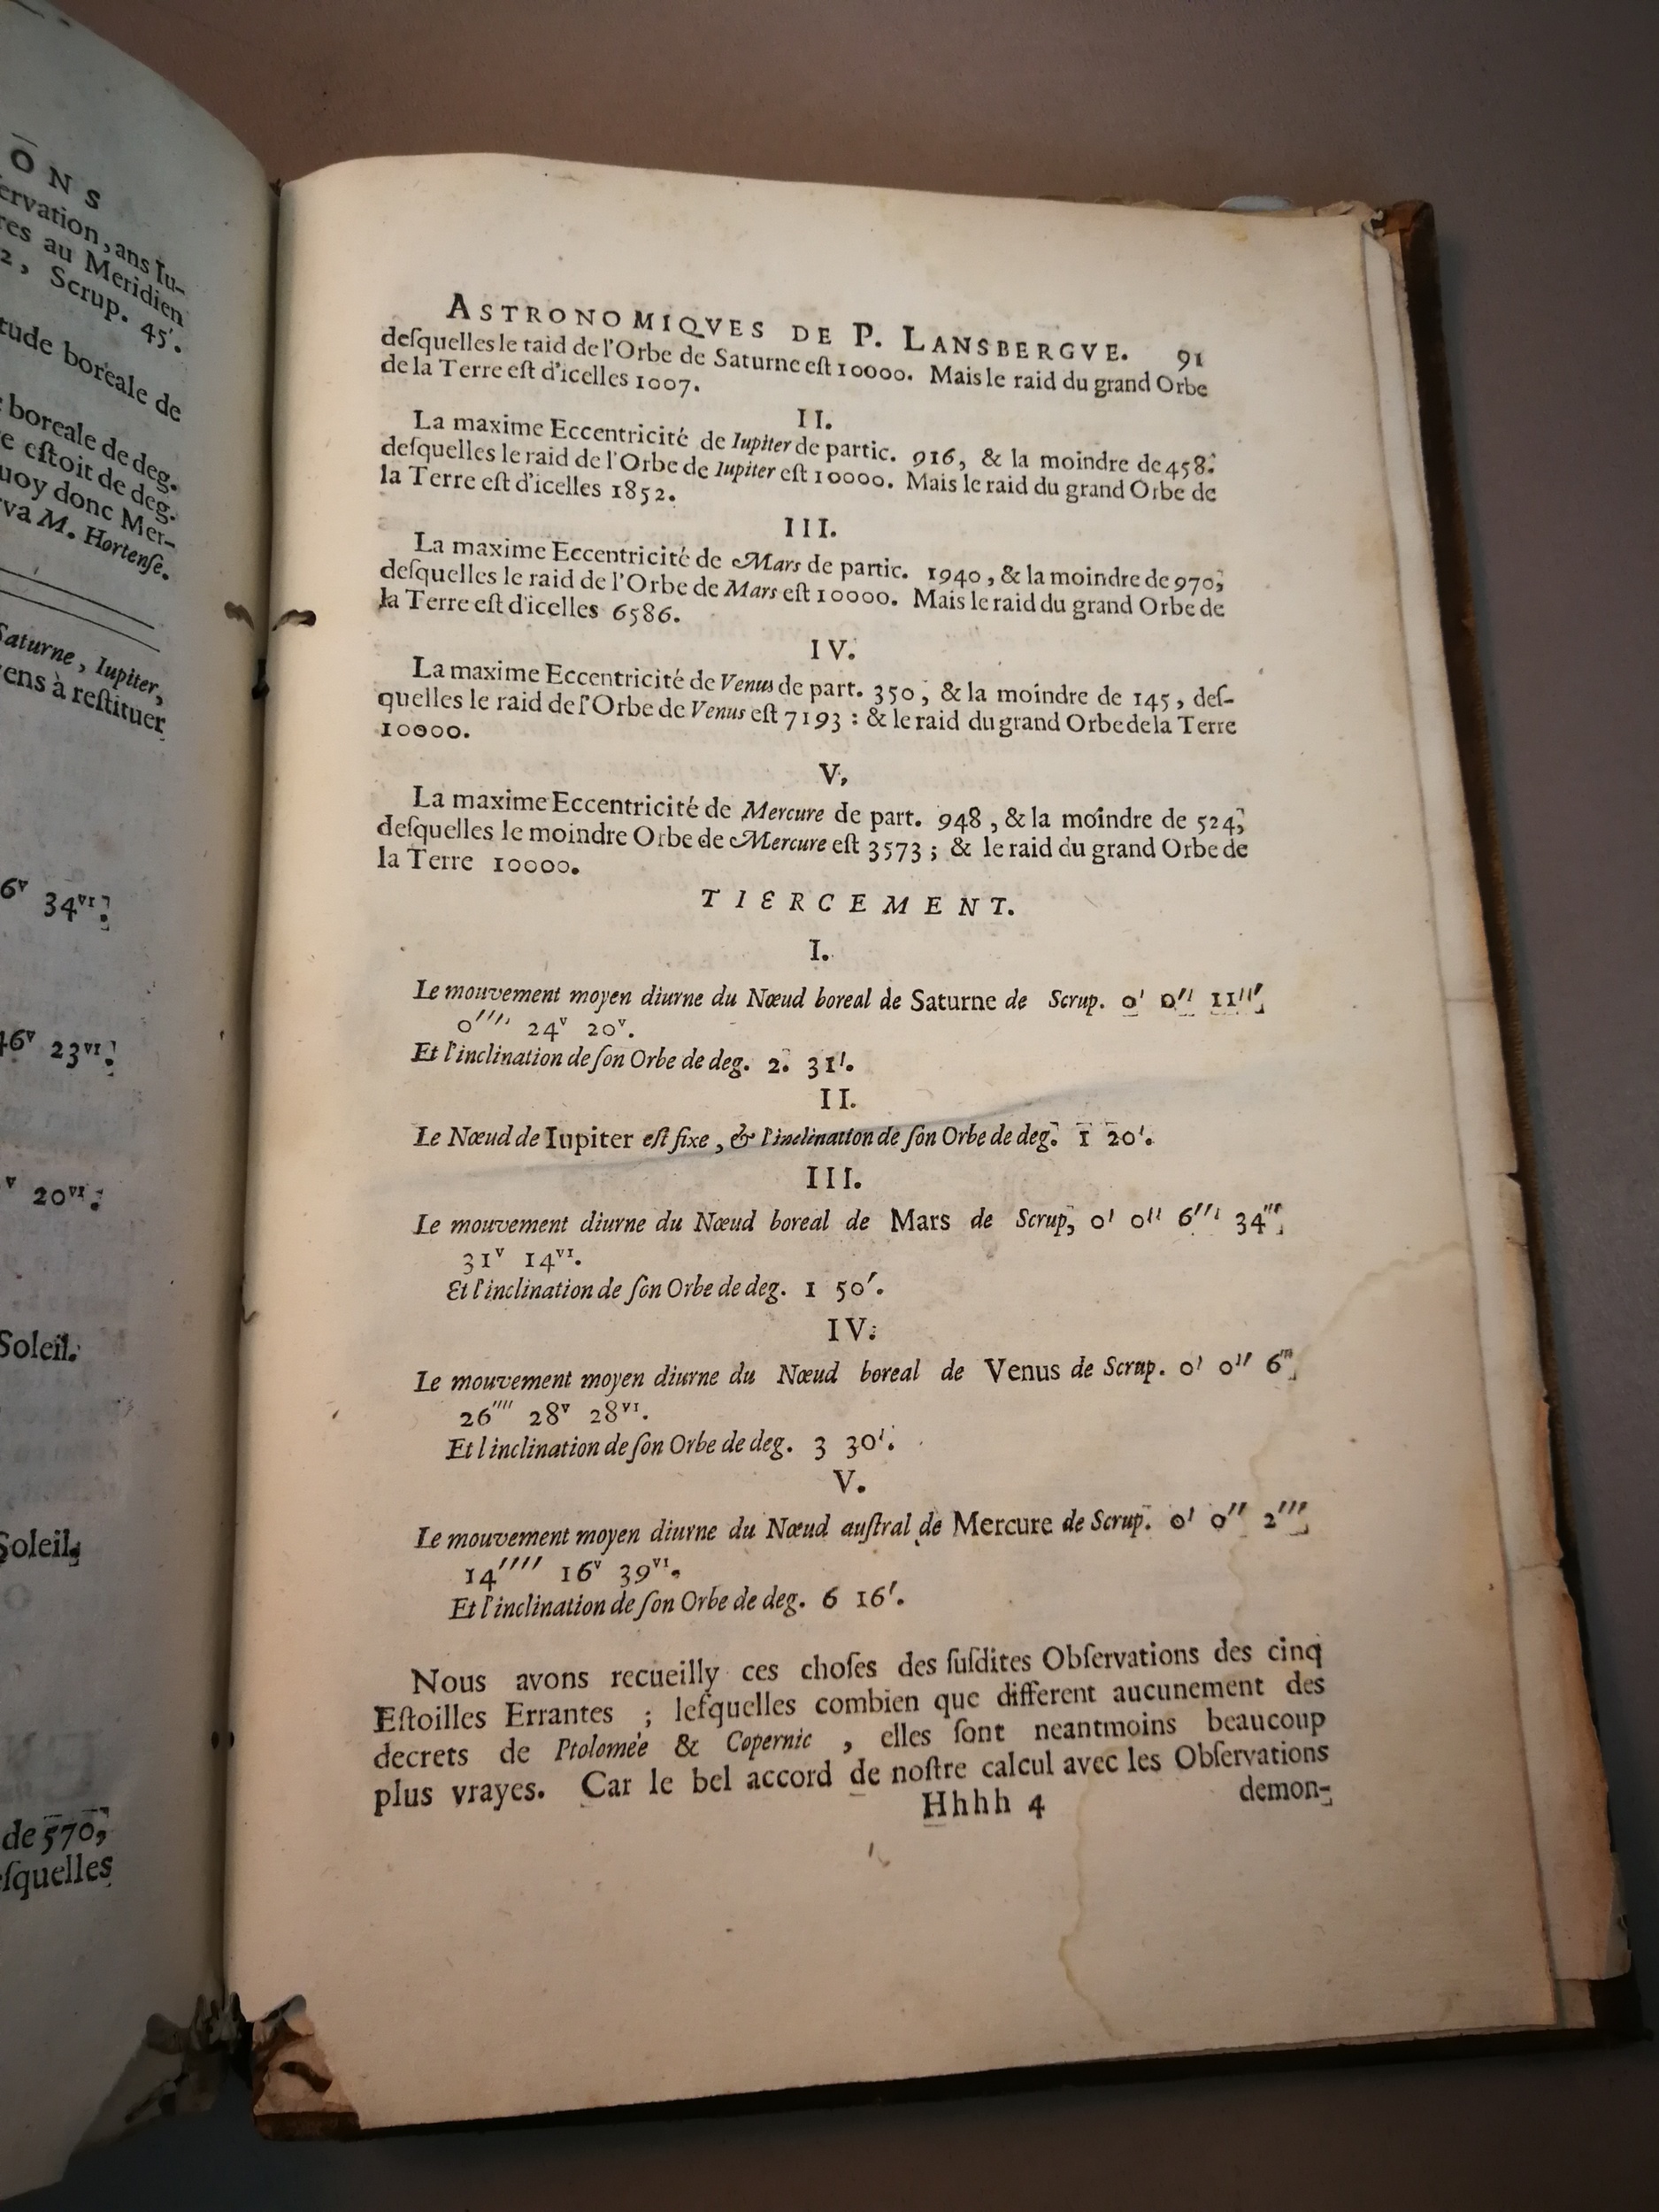 ONS
ervation, ans Iu-
res au Meridien
2, Scrup. 45'.
tude boreale de
boreale de deg.
e eſtoit de deg.
uoy donc Mer-
va M. Hortenſe.
Saturne, Iupiter,
ens à reſtituer
6ᵛ 34ᵛᴵ.
46ᵛ 23ᵛᴵ.
ᵛ 20ᵛᴵ.
Soleil.
Soleil.
de 570,
eſquelles
ASTRONOMIQVES DE P. LANSBERGVE. 91
deſquelles le raid de l'Orbe de Saturne eſt 10000. Mais le raid du grand Orbe
de la Terre eſt d'icelles 1007.
II.
La maxime Eccentricité de Iupiter de partic. 916, & la moindre de 458.
deſquelles le raid de l'Orbe de Iupiter eſt 10000. Mais le raid du grand Orbe de
la Terre eſt d'icelles 1852.
III.
La maxime Eccentricité de Mars de partic. 1940, & la moindre de 970,
deſquelles le raid de l'Orbe de Mars eſt 10000. Mais le raid du grand Orbe de
la Terre eſt d'icelles 6586.
IV.
La maxime Eccentricité de Venus de part. 350, & la moindre de 145, deſ-
quelles le raid de l'Orbe de Venus eſt 7193 : & le raid du grand Orbe de la Terre
10000.
V,
La maxime Eccentricité de Mercure de part. 948, & la moindre de 524,
deſquelles le moindre Orbe de Mercure eſt 3573 ; & le raid du grand Orbe de
la Terre 10000.
TIERCEMENT.
I.
Le mouvement moyen diurne du Nœud boreal de Saturne de Scrup. 0' 0'' 11'''
0'''' 24ᵛ 20ᵛ.
Et l'inclination de ſon Orbe de deg. 2. 31'.
II.
Le Nœud de Iupiter eſt fixe, & l'inclination de ſon Orbe de deg. 1 20'.
III.
Le mouvement diurne du Nœud boreal de Mars de Scrup, 0' 0'' 6''' 34''''
31ᵛ 14ᵛᴵ.
Et l'inclination de ſon Orbe de deg. 1 50'.
IV.
Le mouvement moyen diurne du Nœud boreal de Venus de Scrup. 0' 0'' 6'''
26'''' 28ᵛ 28ᵛᴵ.
Et l'inclination de ſon Orbe de deg. 3 30'.
V.
Le mouvement moyen diurne du Nœud auſtral de Mercure de Scrup. 0' 0'' 2'''
14'''' 16ᵛ 39ᵛᴵ.
Et l'inclination de ſon Orbe de deg. 6 16'.
Nous avons recueilly ces choſes des ſuſdites Obſervations des cinq
Eſtoilles Errantes ; leſquelles combien que different aucunement des
decrets de Ptolomée & Copernic , elles ſont neantmoins beaucoup
plus vrayes. Car le bel accord de noſtre calcul avec les Obſervations
Hhhh 4 demon-